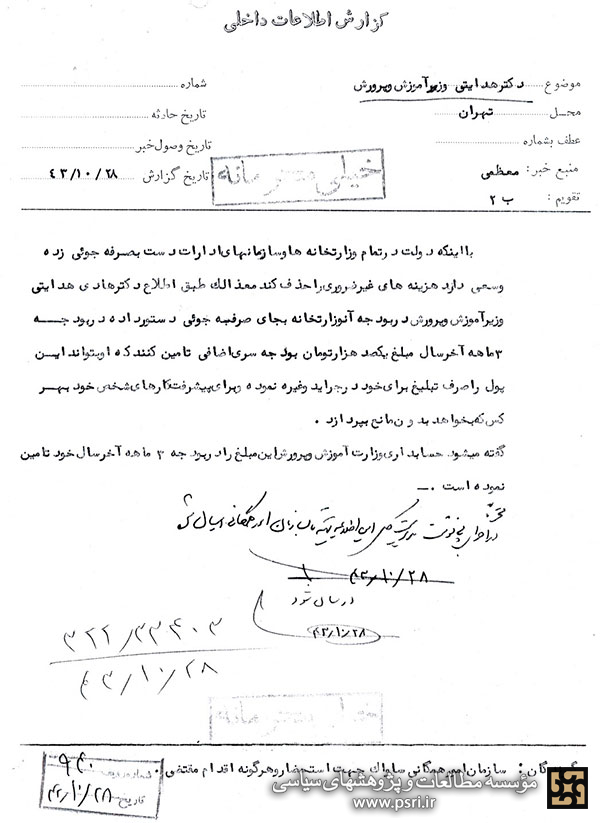 گزارش اطلاعات داخلی
موضوع دکترهدایتی وزیرآموزش وپرورش
شماره
محل تهران
تاریخ حادثه
عطف بشماره
تاریخ وصول خبر
منبع خبر: معظمی
تاریخ گزارش ۴۳/۱۰/۲۸
تقویم: ب ۲
خیلی محرمانه
بااینکه دولت درتمام وزارتخانه هاوسازمانهای ادارات دست بصرفه جوئی زده
وسعی دارد هزینه های غیرضروری راحذف کند معذالک طبق اطلاع دکترهادی هدایتی
وزیرآموزش وپرورش دربودجه آنوزارتخانه بجای صرفه جوئی دستورداده دربودجه
۳ماهه آخرسال مبلغ یکصد هزارتومان بودجه سری اضافی تامین کنند که اوبتوانداین
پول راصرف تبلیغ برای خود درجراید وغیره نموده وبرای پیشرفتکارهای شخص خود بهر
کس که بخواهد بدون مانع بپردازد .
گفته میشود حسابداری وزارت آموزش وپرورش این مبلغ رادربودجه ۳ ماهه آخرسال خود تامین
نموده است .
۴۳/۱۰/۲۸
ارسال شود
۴۳/۱۰/۲۸
۳۲۲/۳۳۴۰۳
۴۳/۱۰/۲۸
خیلی محرمانه
گیرندگان: سازمان امورهمگانی ساواک جهت استحضار وهرگونه اقدام مقتضی .
شماره ردیف ۹۴۰
تاریخ ۴۳/۱۰/۲۸
مؤسسه مطالعات و پژوهشهای سیاسی
www.psri.ir